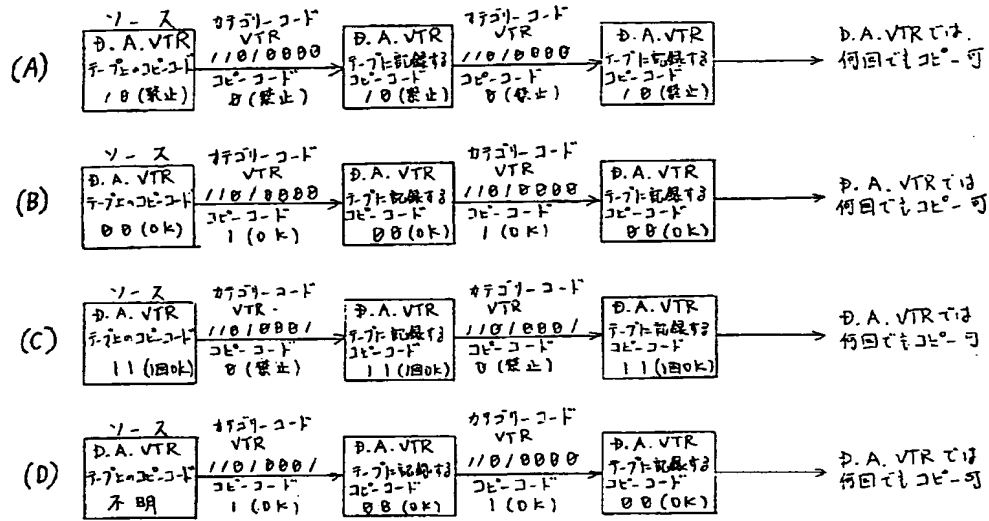 (A)
ソース
D.A.VTR
テープ上のコピーコード
10(禁止)
カテゴリーコード
VTR
11010000
コピーコード
0(禁止)
D.A.VTR
テープに記録する
コピーコード
10(禁止)
カテゴリーコード
VTR
11010000
コピーコード
0(禁止)
D.A.VTR
テープに記録する
コピーコード
10(禁止)
D.A.VTRでは
何回でもコピー可
(B)
ソース
D.A.VTR
テープ上のコピーコード
00(OK)
カテゴリーコード
VTR
11010000
コピーコード
1(OK)
D.A.VTR
テープに記録する
コピーコード
00(OK)
カテゴリーコード
VTR
11010000
コピーコード
1(OK)
D.A.VTR
テープに記録する
コピーコード
00(OK)
D.A.VTRでは
何回でもコピー可
(C)
ソース
D.A.VTR
テープ上のコピーコード
11(1回OK)
カテゴリーコード
VTR
11010001
コピーコード
0(禁止)
D.A.VTR
テープに記録する
コピーコード
11(1回OK)
カテゴリーコード
VTR
11010001
コピーコード
0(禁止)
D.A.VTR
テープに記録する
コピーコード
11(1回OK)
D.A.VTRでは
何回でもコピー可
(D)
ソース
D.A.VTR
テープ上のコピーコード
不明
カテゴリーコード
VTR
11010001
コピーコード
1(OK)
D.A.VTR
テープに記録する
コピーコード
00(OK)
カテゴリーコード
VTR
11010000
コピーコード
1(OK)
D.A.VTR
テープに記録する
コピーコード
00(OK)
D.A.VTRでは
何回でもコピー可